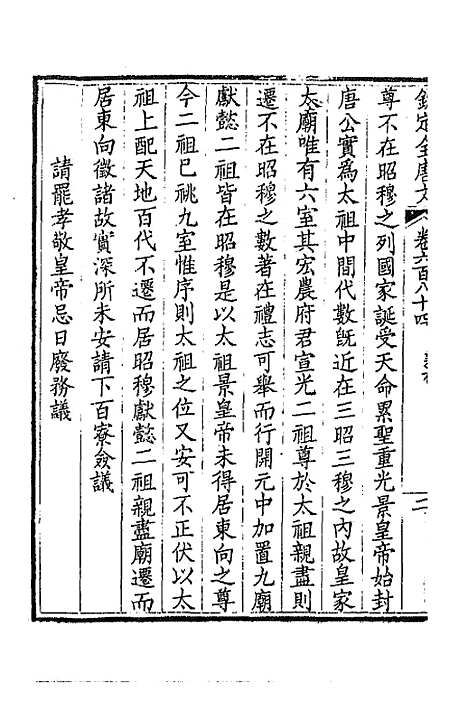 欽定全唐文 卷六百八十四
尊不在昭穆之列國家誕受天命累聖重光景皇帝始封
唐公實爲太祖中間代數既近在三昭三穆之內故皇家
太廟唯有六室其宏農府君宣光二祖尊於太祖親盡則
遷不在昭穆之數著在禮志可舉而行開元中加置九廟
獻懿二祖皆在昭穆是以太祖景皇帝未得居東向之尊
今二祖已祧九室惟序則太祖之位又安可不正伏以太
祖上配天地百代不遷而居昭穆獻懿二祖親盡廟遷而
居東向徵諸故實深所未安請下百寮僉議
請罷孝敬皇帝忌日廢務議